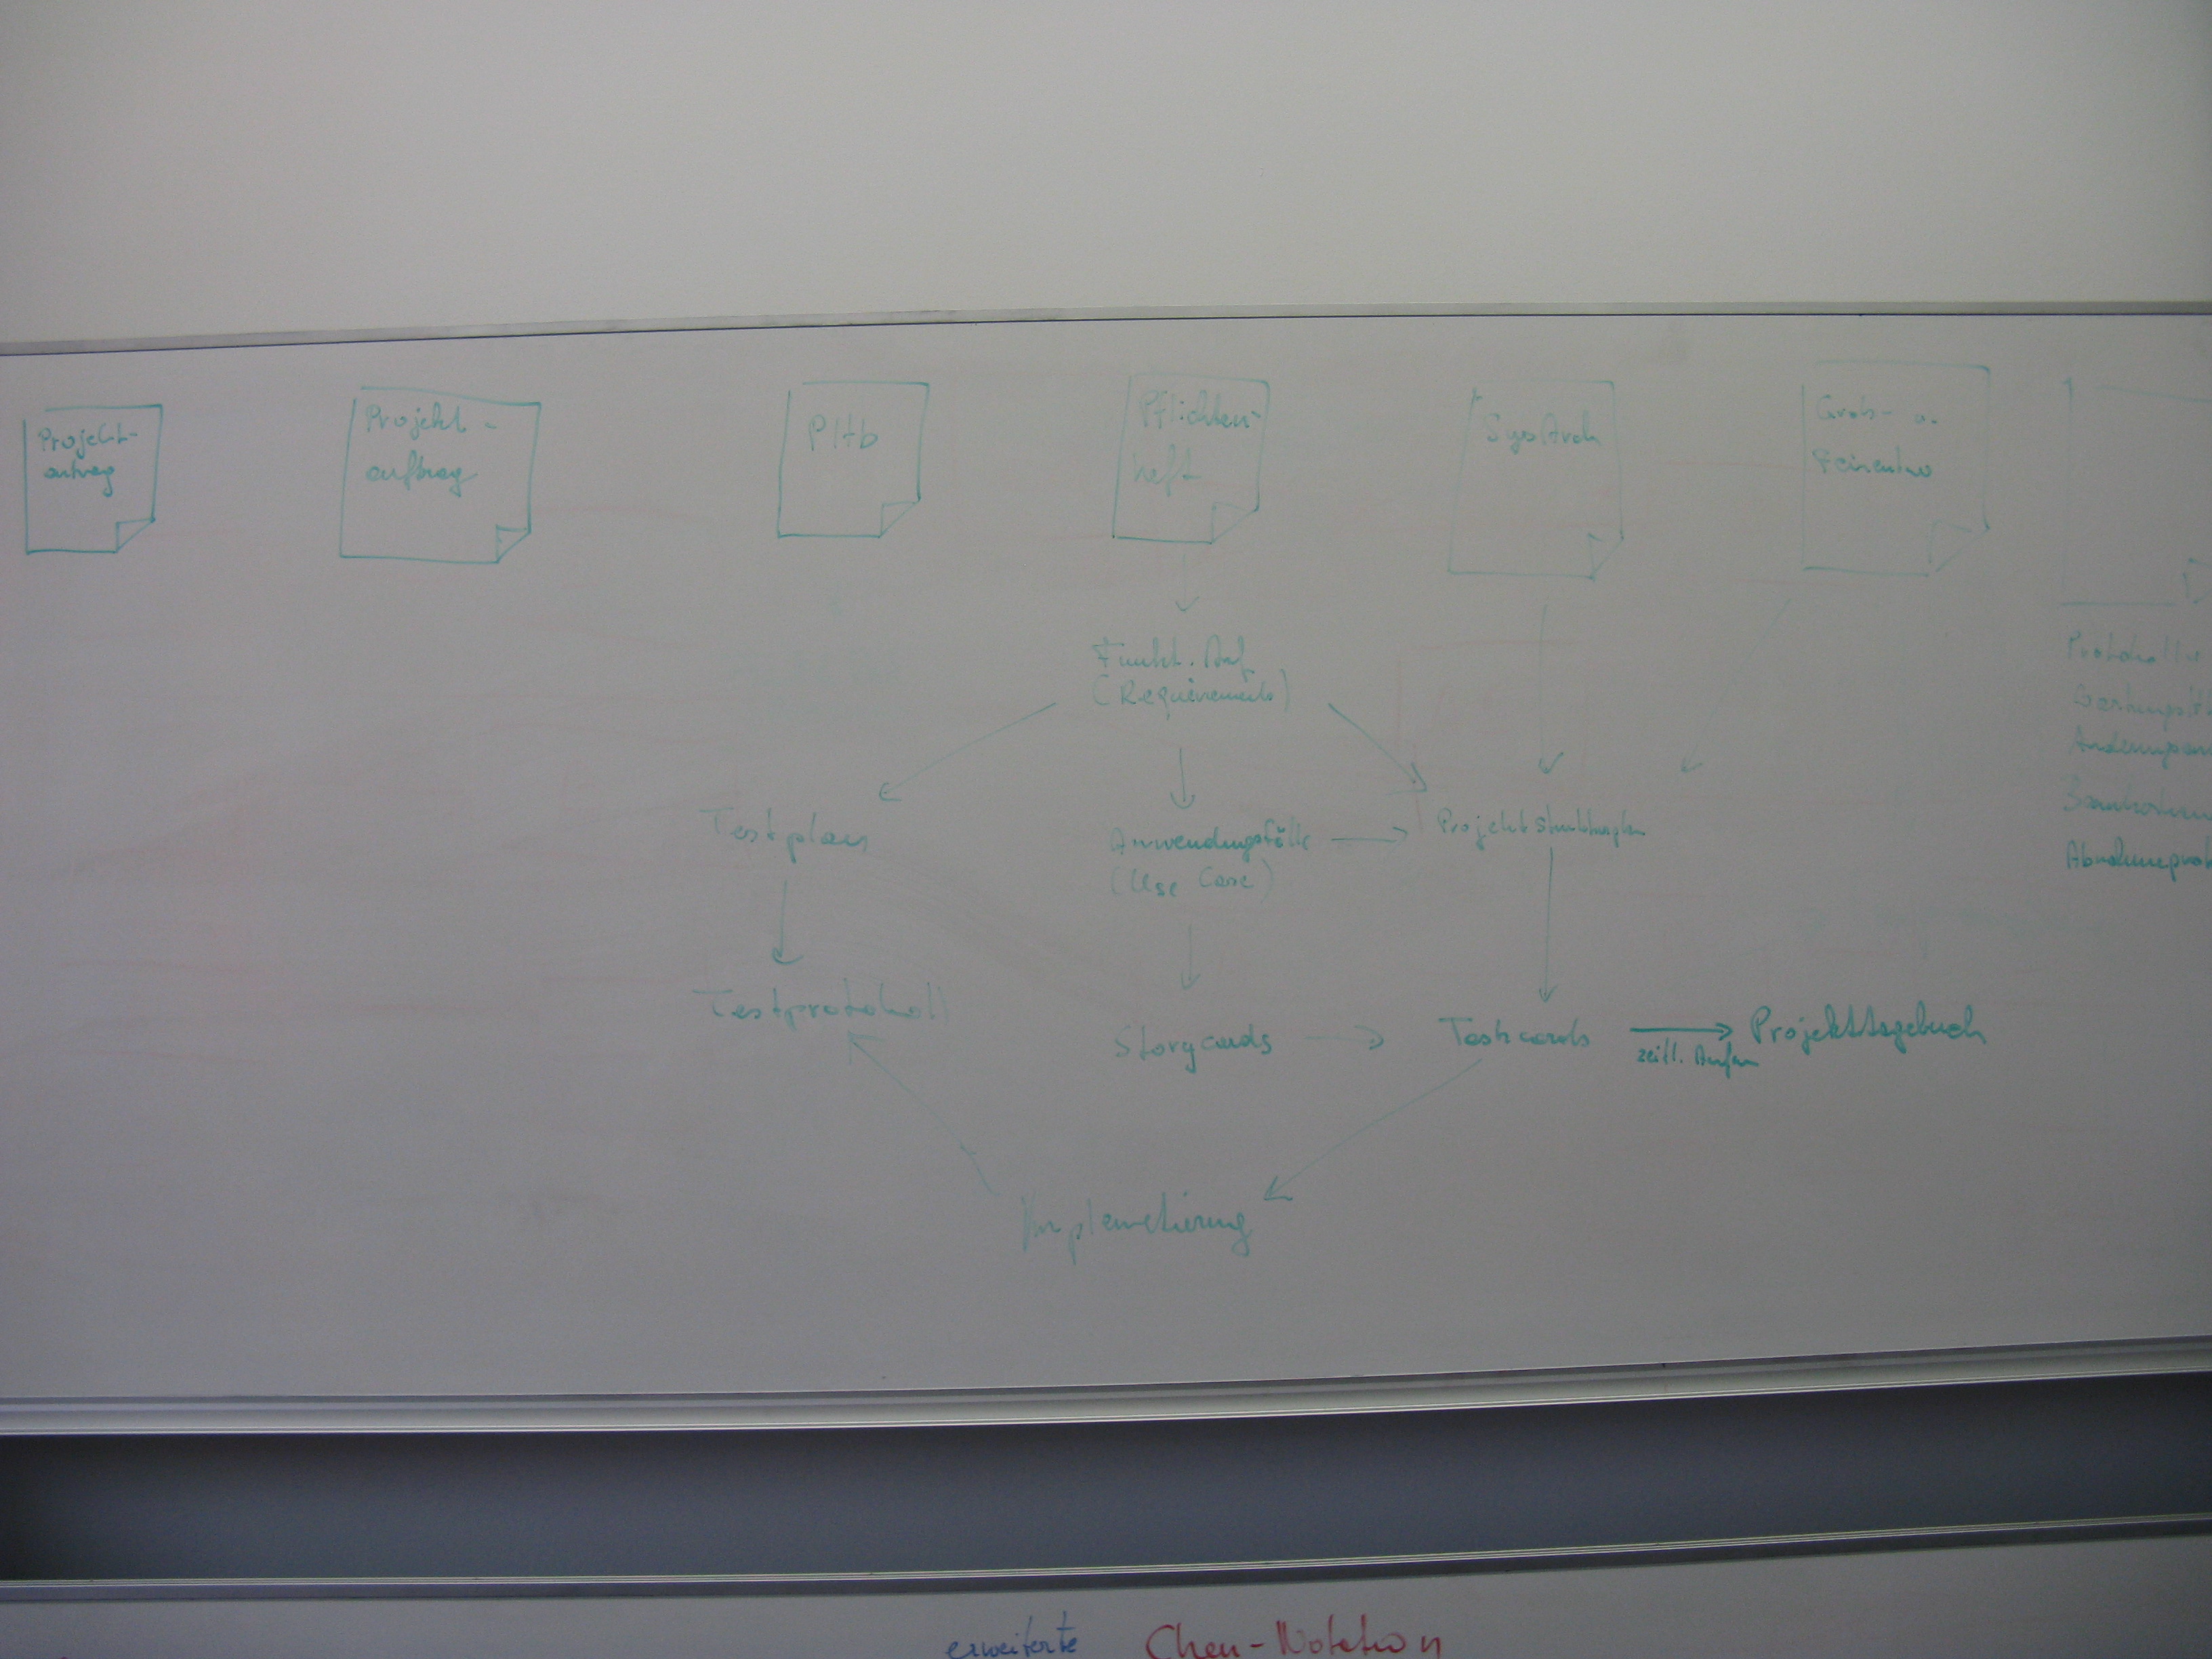 Projekt-
antrag
Projekt-
auftrag
PHb
Pflichten-
heft
SysArch
Grob- u.
Feinentw
Funkt. Anf
(Requirements)
Testplan
Anwendungsfälle
(Use Case)
Projektstrukturplan
Testprotokoll
Storycards
Taskcards
zeitl. Aufw
Projekttagebuch
Implemetierung
Protokolle
Änderungsan
Abnahmeprot
erweiterte Chen-Notation